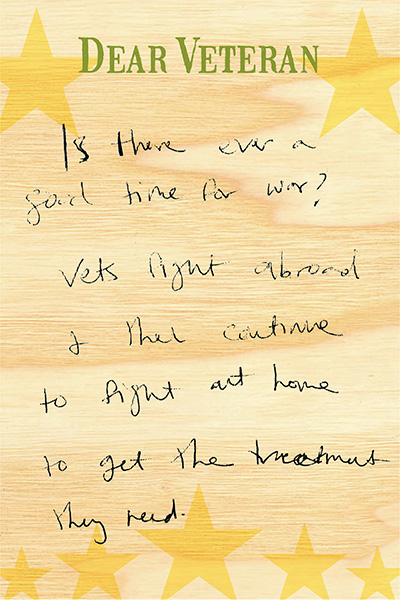 DEAR VETERAN
Is there ever a
good time for war?
Vets fight abroad
& then continue
to fight at home
to get the treatment
they need.